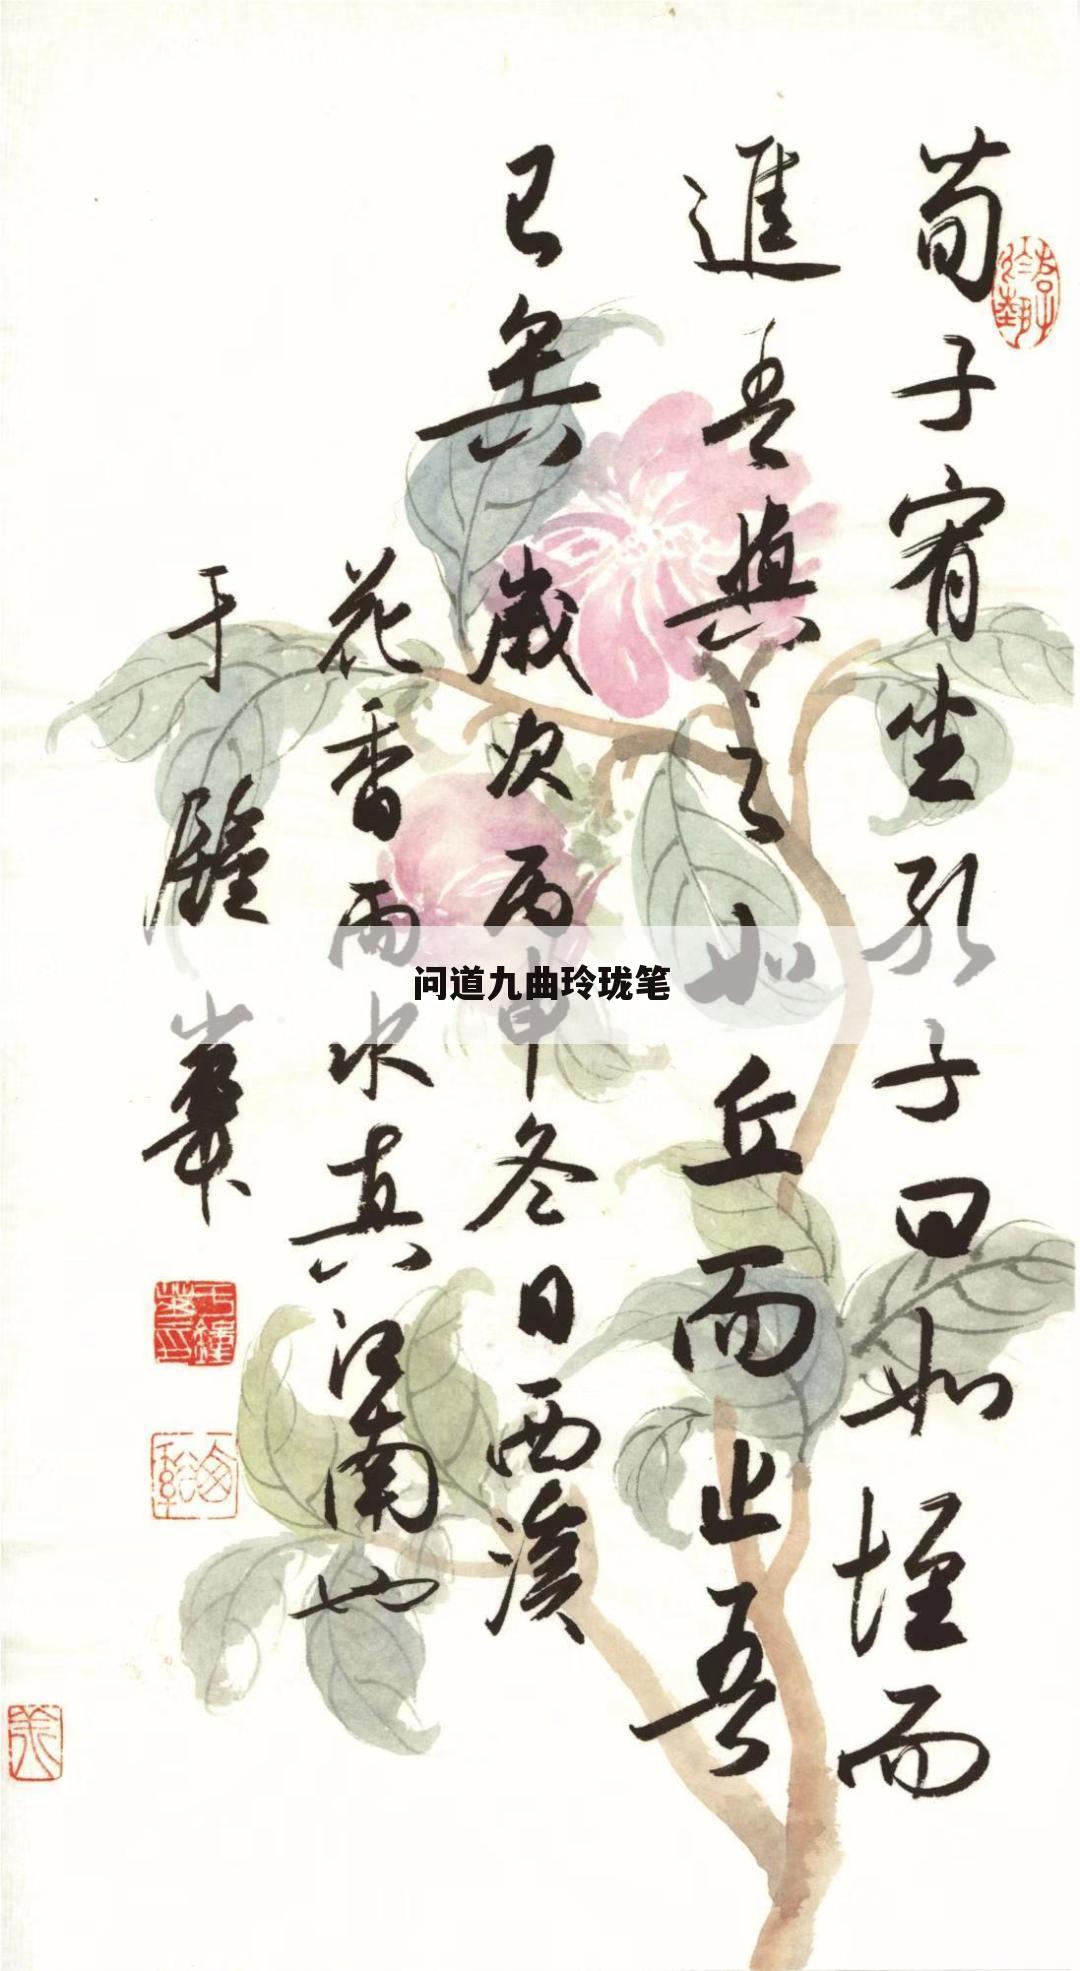 荀子宥坐孔子曰如垤而
進吾與之如丘而止吾
已矣
歲次丙申冬日西溪
花香雨水真江南也
于鐘華
问道九曲玲珑笔